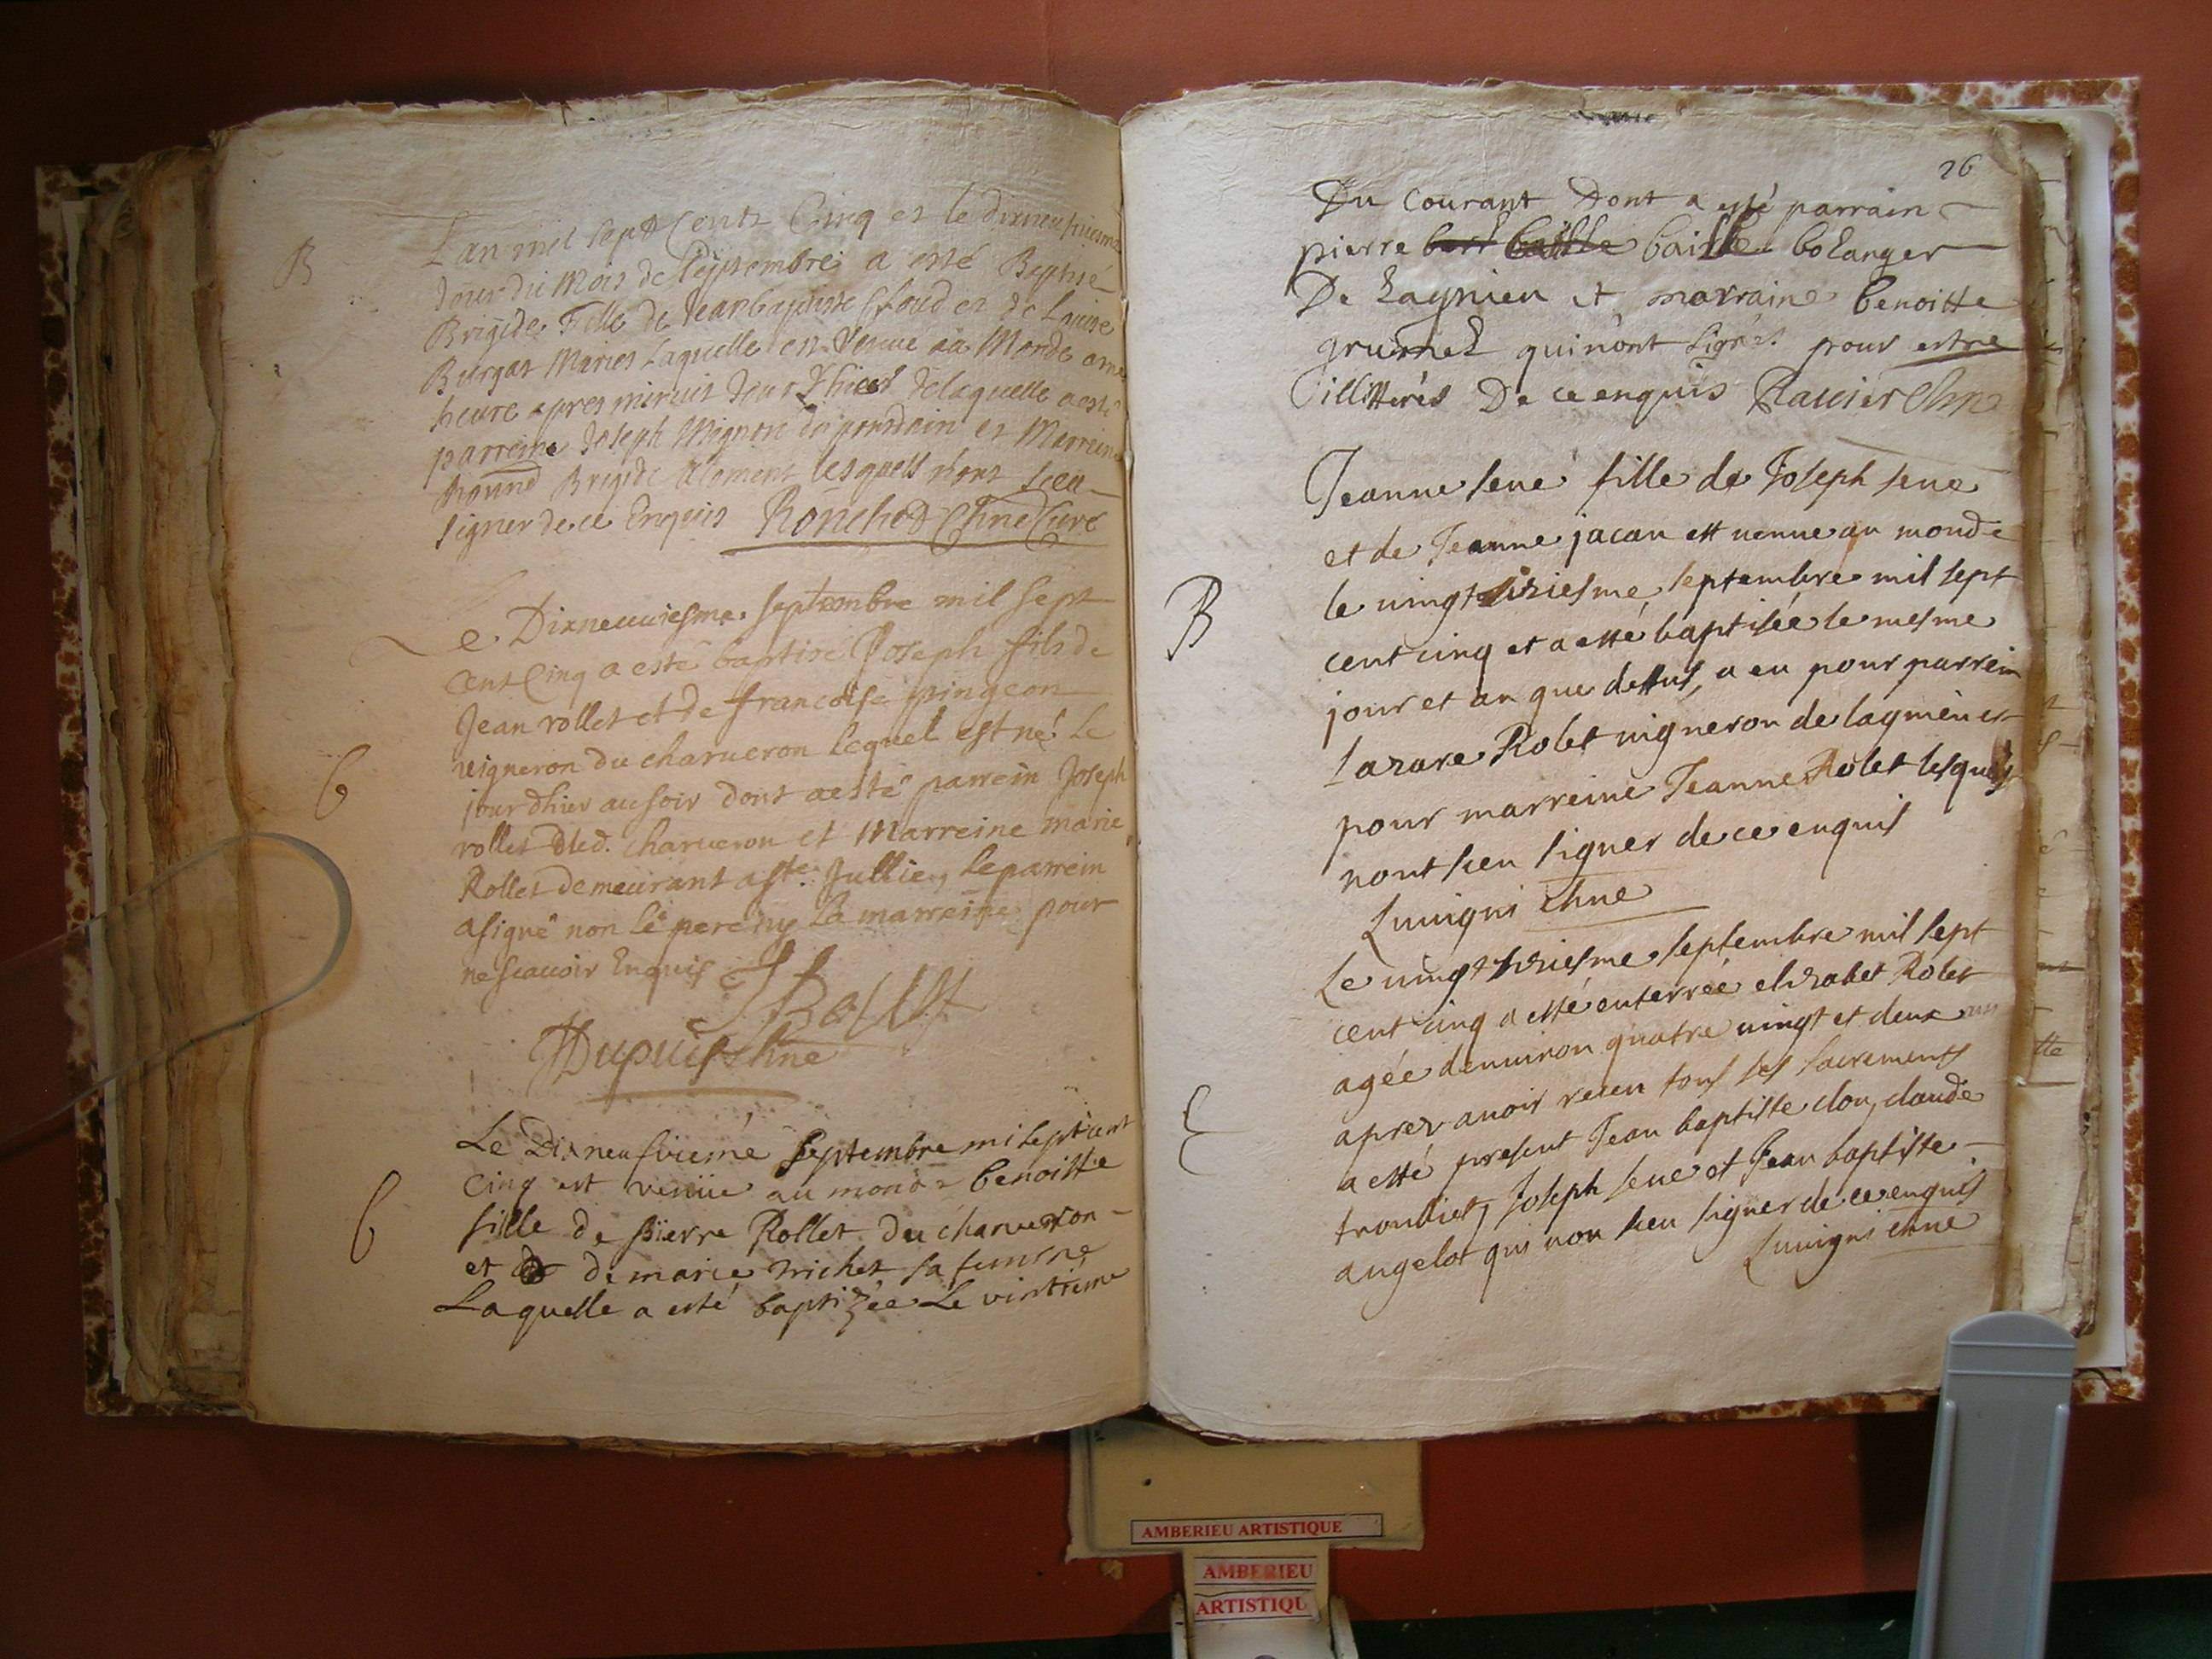 B
L'an mil sept Cents Cinq et le dixneufviesme
Jour du Mois de Septembre a esté Baptisé
Brigide Fille de Jean baptiste Cloud et de Louise
Burgat Mariés Laquelle est Venue au Monde onze
heure apres minuit Jour d'hier delaquelle a esté
parreine Joseph Mignon du pourdain et Marreine
honne Brigide Alement lesquells n'ont sceu
signer de ce Enquis Ronchod Chne Curé
Le Dixneuuiesme septembre mil sept
Cent Cinq a esté baptisé Joseph fils de
Jean rollet et de francoise pingeon
uigneron du charueron lequel est né Le
6
jour d'hier au soir dont a esté parrein Joseph
rollet dud. Charueron et Marreine marie
Rollet demeurant a Ste. Jullie, le parrein
a signé non le pere ny La marreine pour
ne scauoir Enquis
J Rollet
Dupuis chne
Le Dixneufvieme septembre mil sept cent
6
Cinq est venüe au monde benoitte
fille de pierre Rollet du charueron
et de marie trichet sa femme
Laquelle a esté baptizée Le vintieme
26
Du Courant Dont a esté parrain
pierre baille bolanger
De Lagnieu et marraine benoitte
grumel qui n'ont signés pour estre
illitterés De ce enquis Rauier Chne
Jeanne seue fille de Joseph seue
et de Jeanne jacau est uenue au monde
B
le uingt sixiesme septembre mil sept
cent cinq et a esté baptisée le mesme
jour et an que dessus, a eu pour parrein
Lazare Rolet uigneron de lagnieu et
pour marreine Jeanne Rolet lesquels
nont sceu signer de ce enquis
Luuigni chne
Le uingt sixiesme septembre mil sept
cent cinq a esté enterrée elizabet Rolet
agée denuiron quatre uingt et deux ans
E
aprez auoir receu tous ses sacrements
a esté present Jean baptiste clou, claude
troulliet, Joseph seue et Jean baptiste
angelot qui non sceu signer de ce enquis
Luuigni chne
AMBERIEU ARTISTIQUE
AMBERIEU
ARTISTIQU